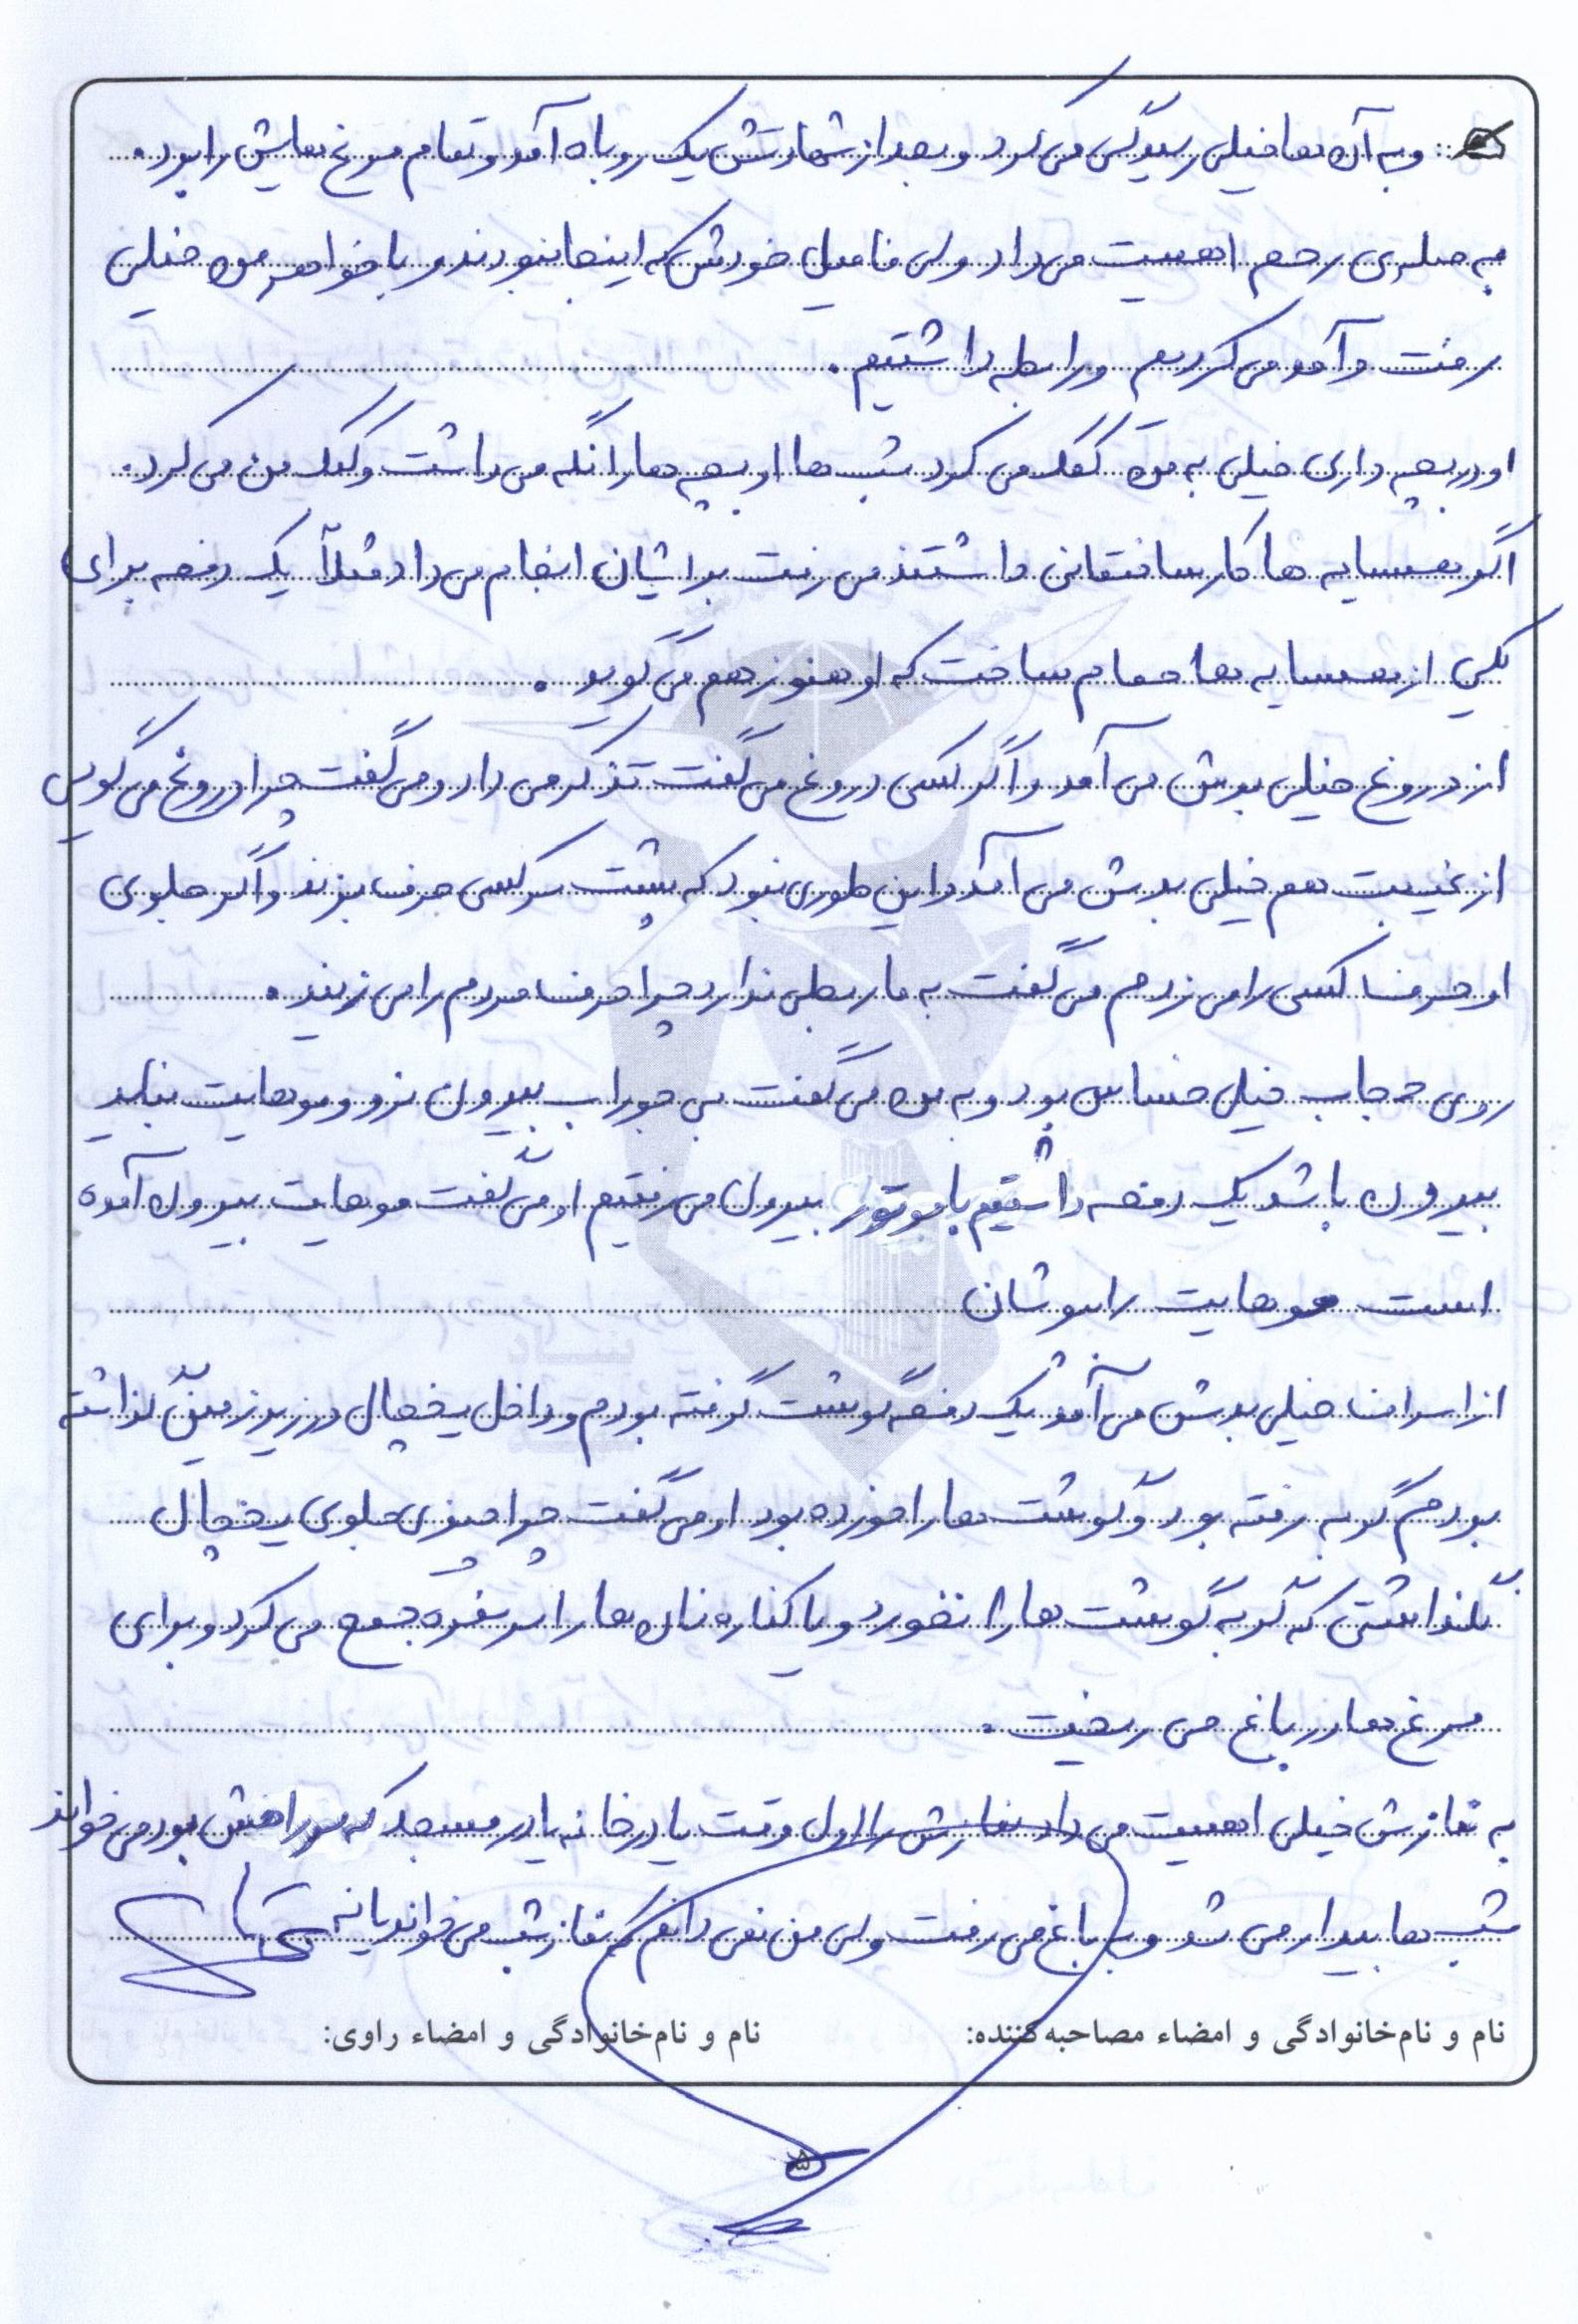 و به آن ها خیلی رسیدگی می کرد و بعد از شهادتش یک روباه آمد و تمام مرغ هایش را برد.
به صله ی رحم اهمیت می داد ولی فامیل خودش که اینجا نبودند و با خواهر من خیلی
رفت و آمد می کردیم و رابطه داشتیم.
او در بچه داری خیلی به من کمک می کرد شب ها او بچه ها را نگه می داشت و کمک من می کرد.
اگر همسایه ها کار ساختمانی داشتند می رفت برایشان انجام می داد مثلاً یک دفعه برای
یکی از همسایه ها حمام ساخت که او هنوز هم می گوید.
از دروغ خیلی بدش می آمد و اگر کسی دروغ می گفت تذکر می داد و می گفت چرا دروغ می گویی
از غیبت هم خیلی بدش می آمد و این طوری نبود که پشت سر کسی حرف بزند و اگر جلوی
او حرف کسی را می زدم می گفت به ما ربطی ندارد چرا حرف مردم را می زنید.
روی حجاب خیلی حساس بود و به من می گفت بی جوراب بیرون نرو و موهایت نباید
بیرون باشد یک دفعه داشتیم با موتور بیرون می رفتیم او می گفت موهایت بیرون آمده
است موهایت را بپوشان
از اسراف خیلی بدش می آمد یک دفعه گوشت گرفته بودم و داخل یخچال در زیرزمین گذاشته
بودم گربه رفته بود و گوشت ها را خورده بود او می گفت چرا چیزی جلوی یخچال
نگذاشتی که گربه گوشت ها را نخورد و یا کناره نان ها را از سفره جمع می کرد و برای
مرغ ها در باغ می ریخت.
به نمازش خیلی اهمیت می داد نمازش را اول وقت یا در خانه یا در مسجد که سر راهش بود می خواند
شب ها بیدار می شد و به باغ می رفت ولی من نمی دانم که نماز شب می خواند یا نه
نام و نام‌خانوادگی و امضاء مصاحبه‌کننده: نام و نام‌خانوادگی و امضاء راوی:
۵